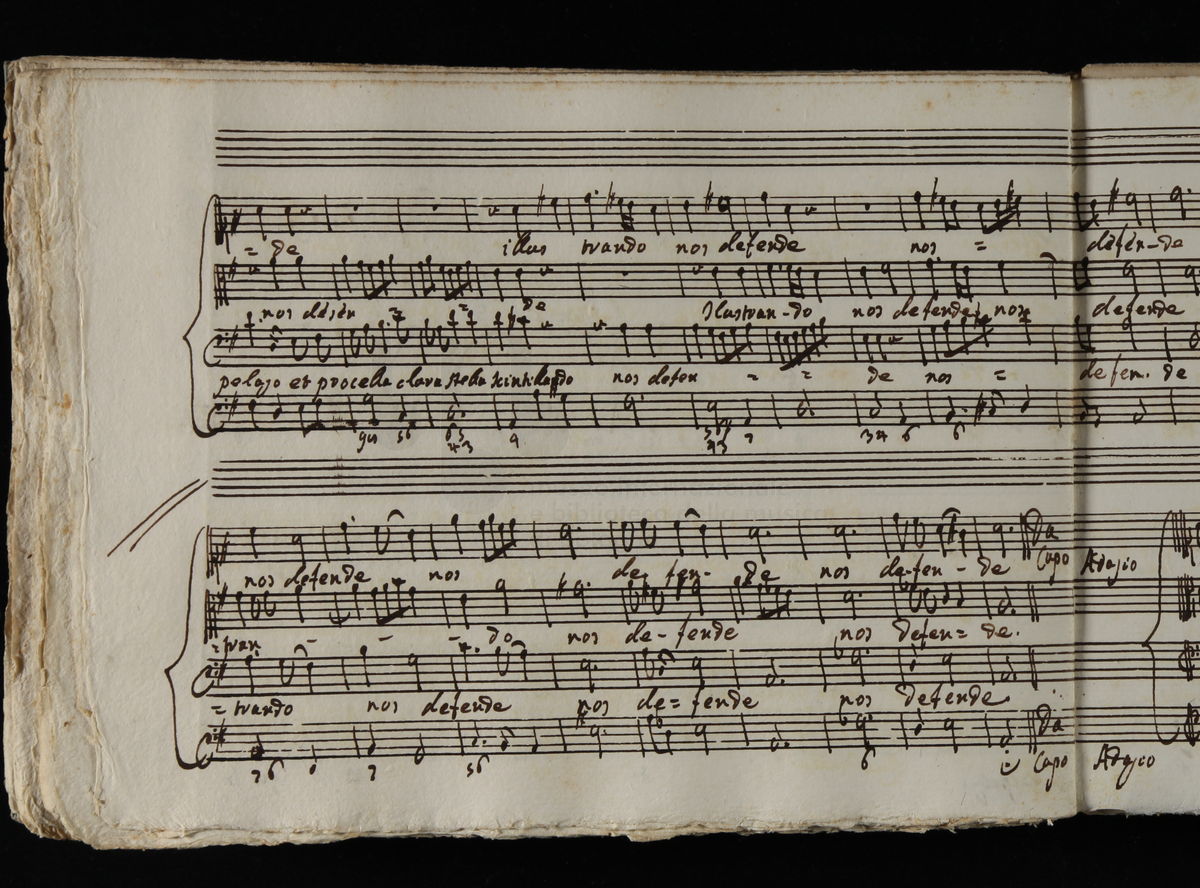 = de illus trando nos defende nos = defen-de
nos defen = = de Ilustran-do nos defende nos defende
pelago et procella clara stella scintilando nos defen = = de nos = defen. de
nos defende nos de-fen-de nos de-fen-de Da Capo Adagio
= tran - - - do nos de-fende nos defen=de.
= trando nos defende nos de=fende nos defende
Da Capo Adagio